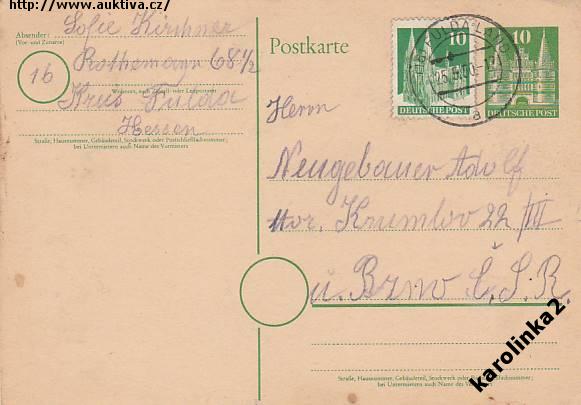 http://www.auktiva.cz/
Absender: Sofie Kirschner
(Vor- und Zuname)
Rothemann 68 1/2
16
Wohnort, auch Zustell- oder Leitpostamt
Krus Fulda
Hessen
Straße, Hausnummer, Gebäudeteil, Stockwerk oder Postschließfachnummer;
bei Untermietern auch Name des Vermieters
Postkarte
10
DEUTSCHE POST
FULDA-LAND
a
10
DEUTSCHE POST
Herrn
Neugebauer Adolf
Mor. Krumlov 22/III
u. Brno Č.S.R.
Straße, Hausnummer, Gebäudeteil, Stockwerk oder Postschließfachnummer;
bei Untermietern auch Name des Vermieters
karolinka2.